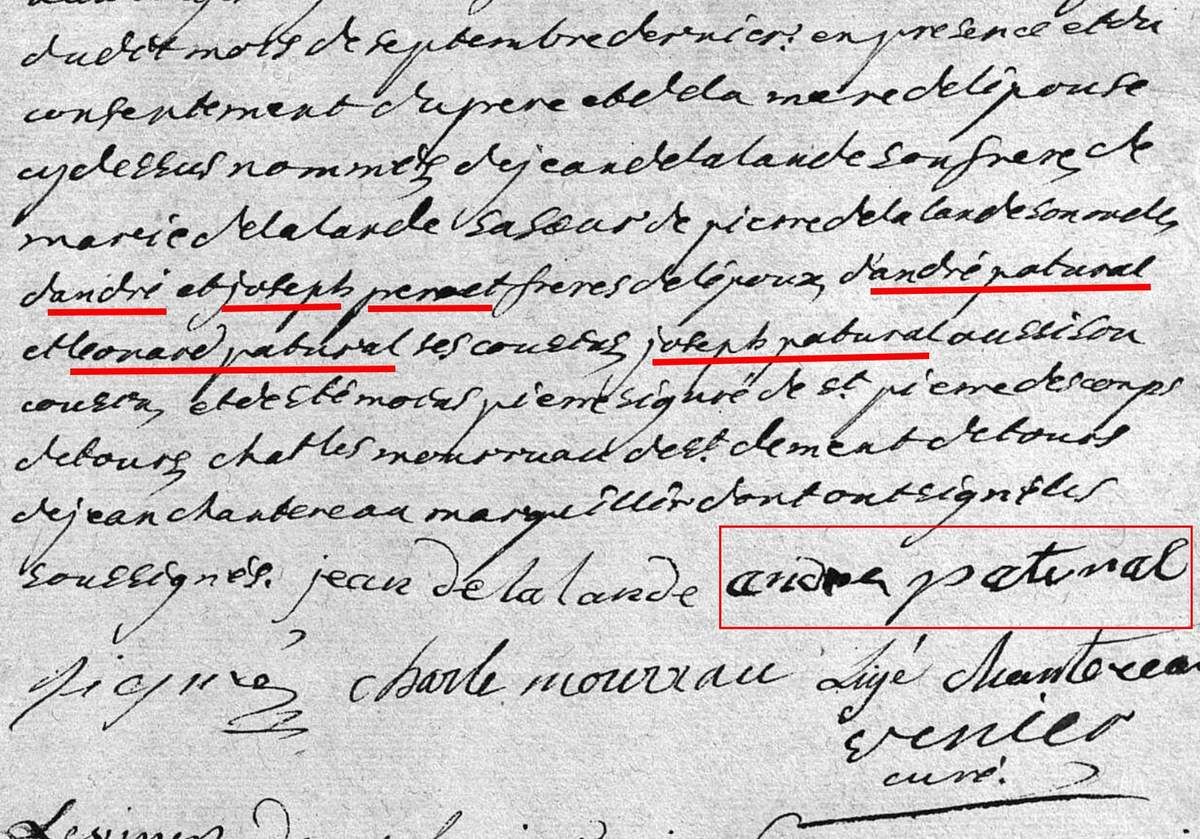 dudit mois de septembre dernier en presence et du
consentement du pere et de la mere de lépouse
cy dessus nommés de jean delalande son frere de
marie delalande sa sœur de pierre delalande son oncle
d'andré et joseph perret freres de lépoux d'andré patural
et leonard patural ses cousins joseph patural aussi son
cousin et des témoins pierre siguré de st pierre des corps
de tours charles mourruau de st clement de tours
de jean chantereau marguillier dont ont signé les
soussignés. jean delalande andre patural
charle mourrau Ligé chanterea
venier
curé.